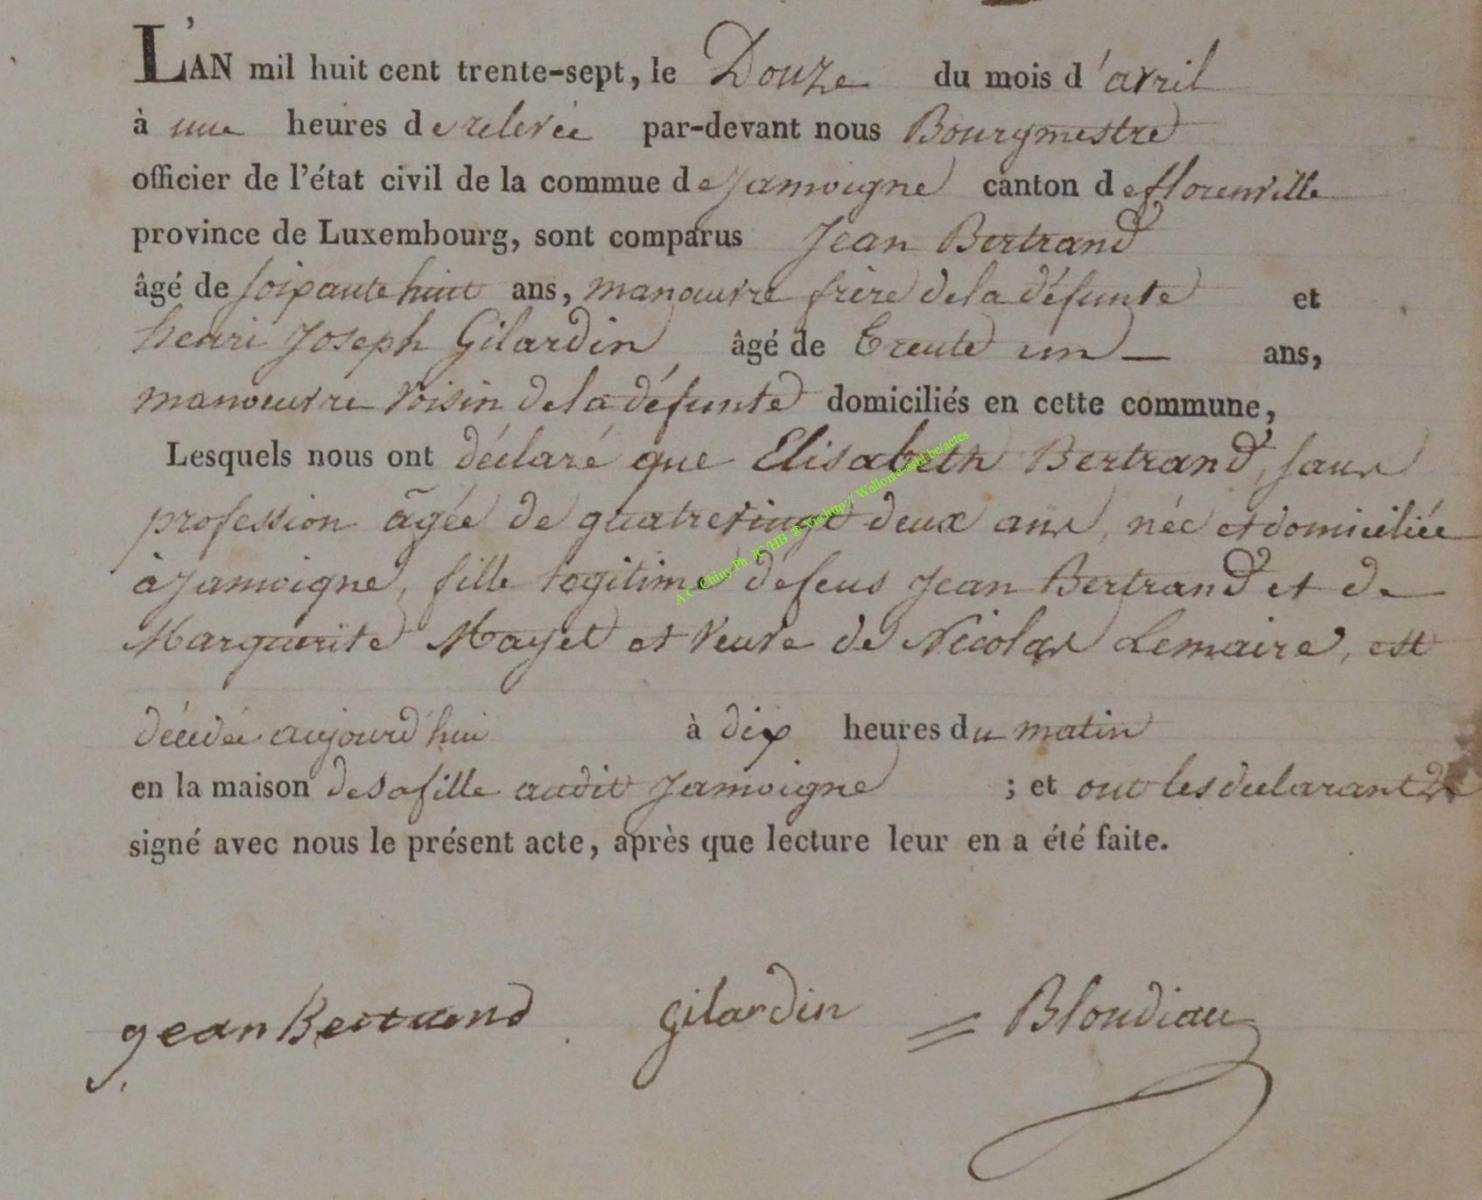 L'AN mil huit cent trente-sept, le Douze du mois d'avril
à une heures de relevée par-devant nous Bourgmestre
officier de l'état civil de la commue de Jamoigne canton de florenville
province de Luxembourg, sont comparus Jean Bertrand
âgé de soixante huit ans, manœuvre frère de la défunte et
henri Joseph Gilardin âgé de trente un — ans,
manoeuvre voisin de la défunte domiciliés en cette commune,
Lesquels nous ont déclaré que Elisabeth Bertrand, sans
profession âgée de quatrevingt deux ans, née et domiciliée
à Jamoigne, fille legitime de feus Jean Bertrand et de
Marguerite Mayet et veuve de Nicolas Lemaire, est
décédée aujourd'hui à dix heures du matin
en la maison de sa fille audit Jamoigne ; et ont les declarant
signé avec nous le présent acte, après que lecture leur en a été faite.
jean Bertrand Gilardin = Blondiau